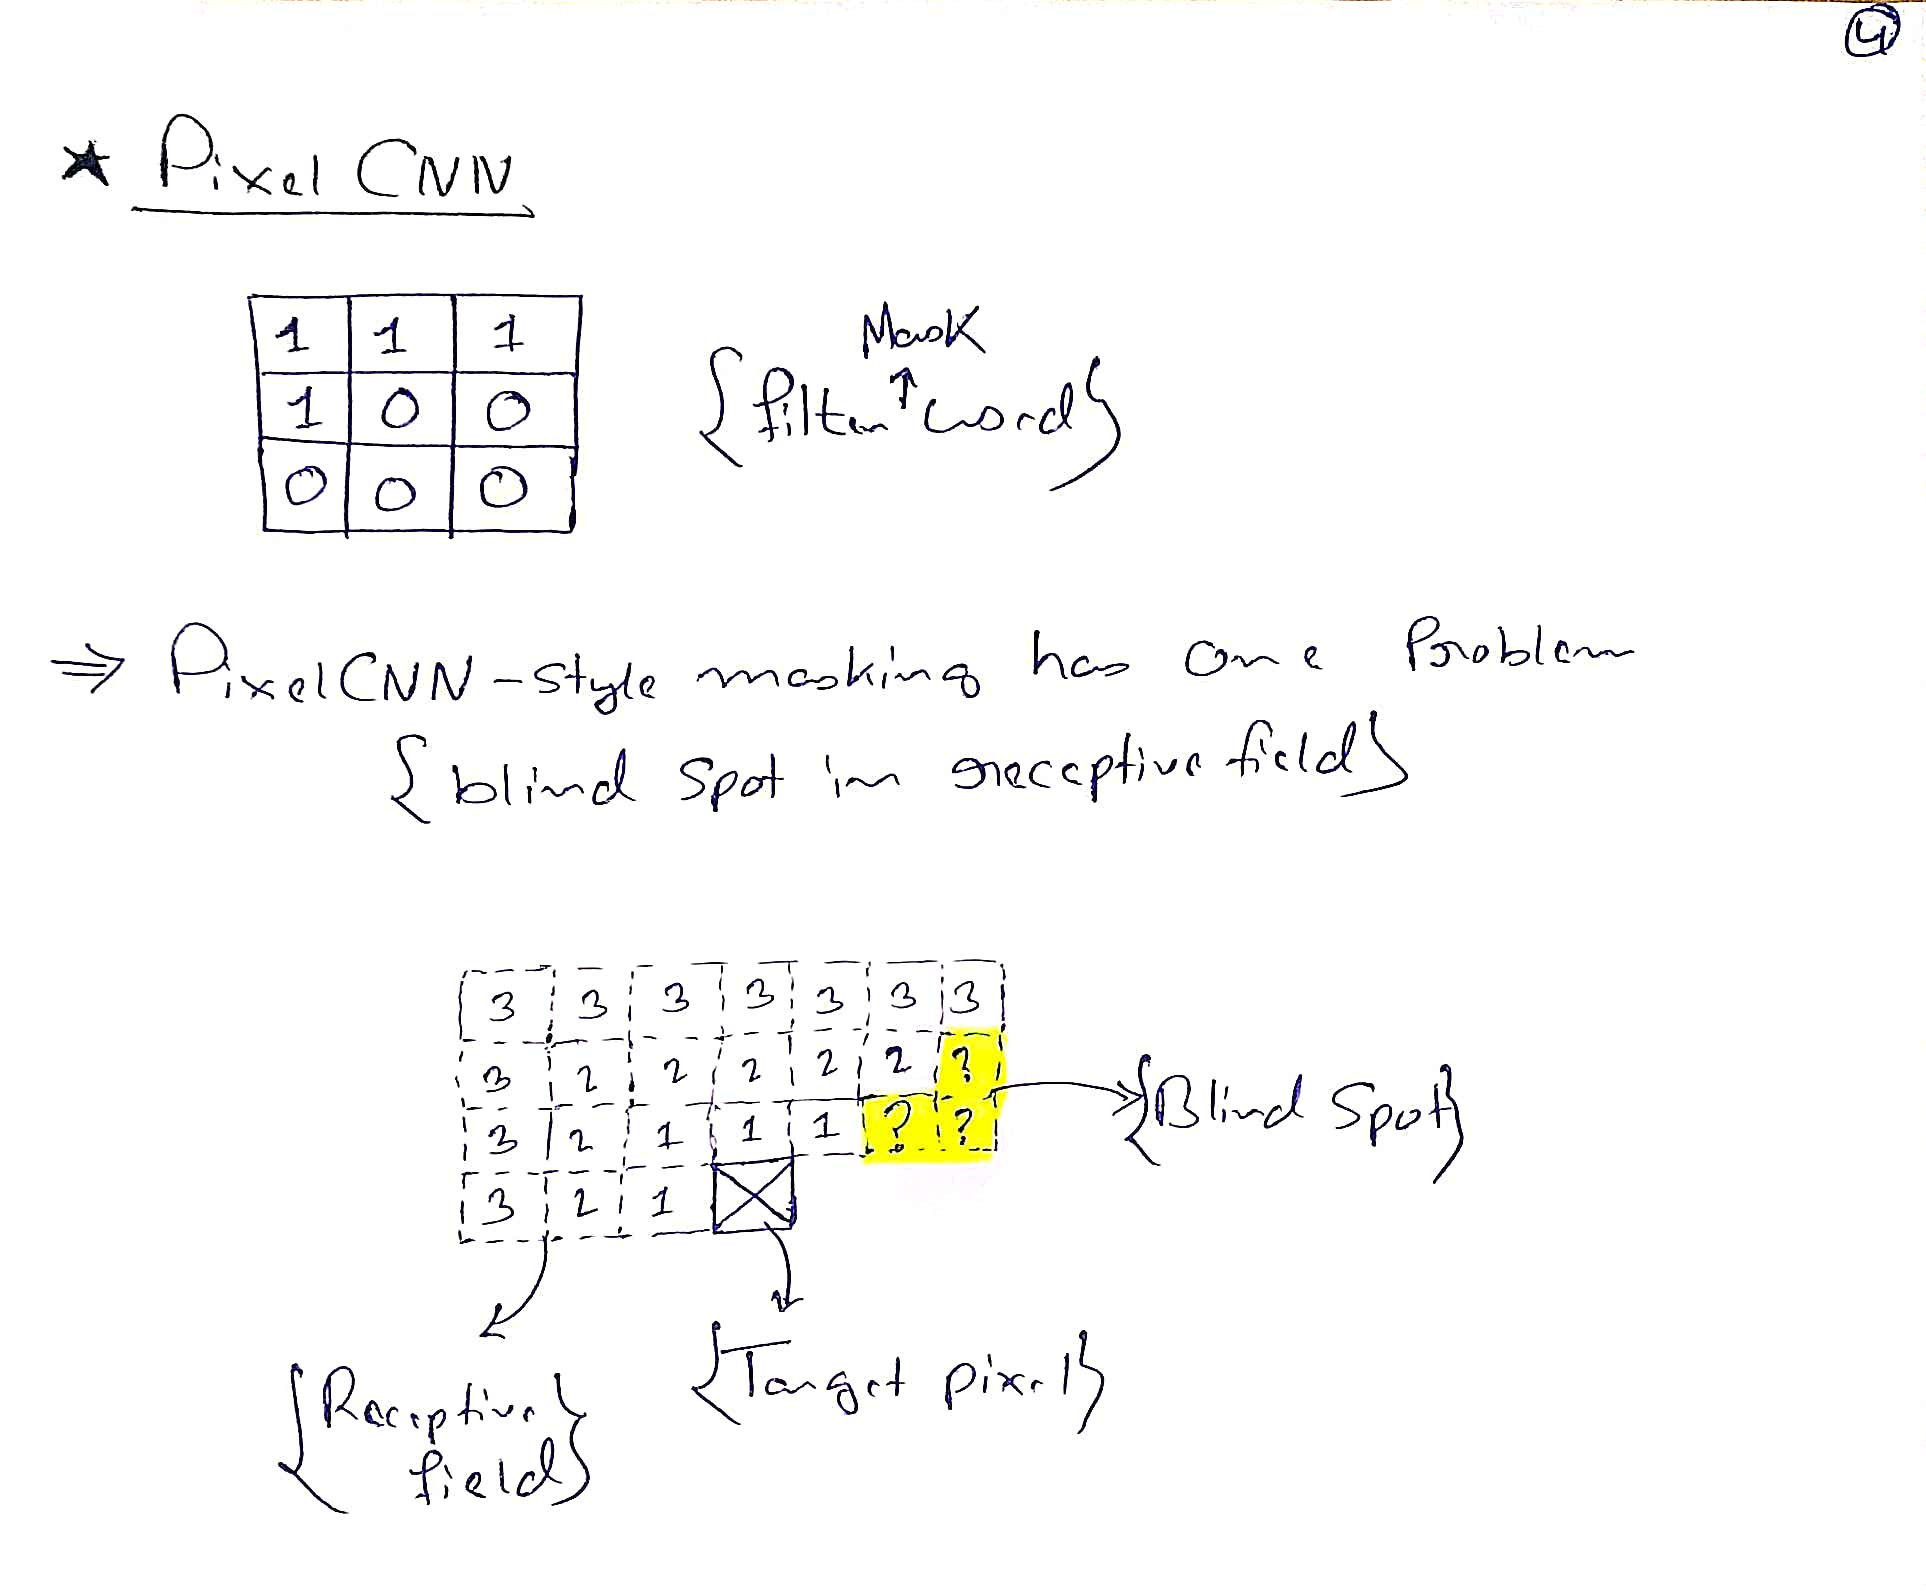 4
★ Pixel CNN
1 1 1
1 0 0
0 0 0
Mask
{filter ↑ word}
⇒ PixelCNN-style masking has one Problem
{blind spot in receptive field}
3 3 3 3 3 3 3
3 2 2 2 2 2 ?
3 2 1 1 1 ? ?
3 2 1
{Blind Spot}
{Target pixel}
{Receptive
field}